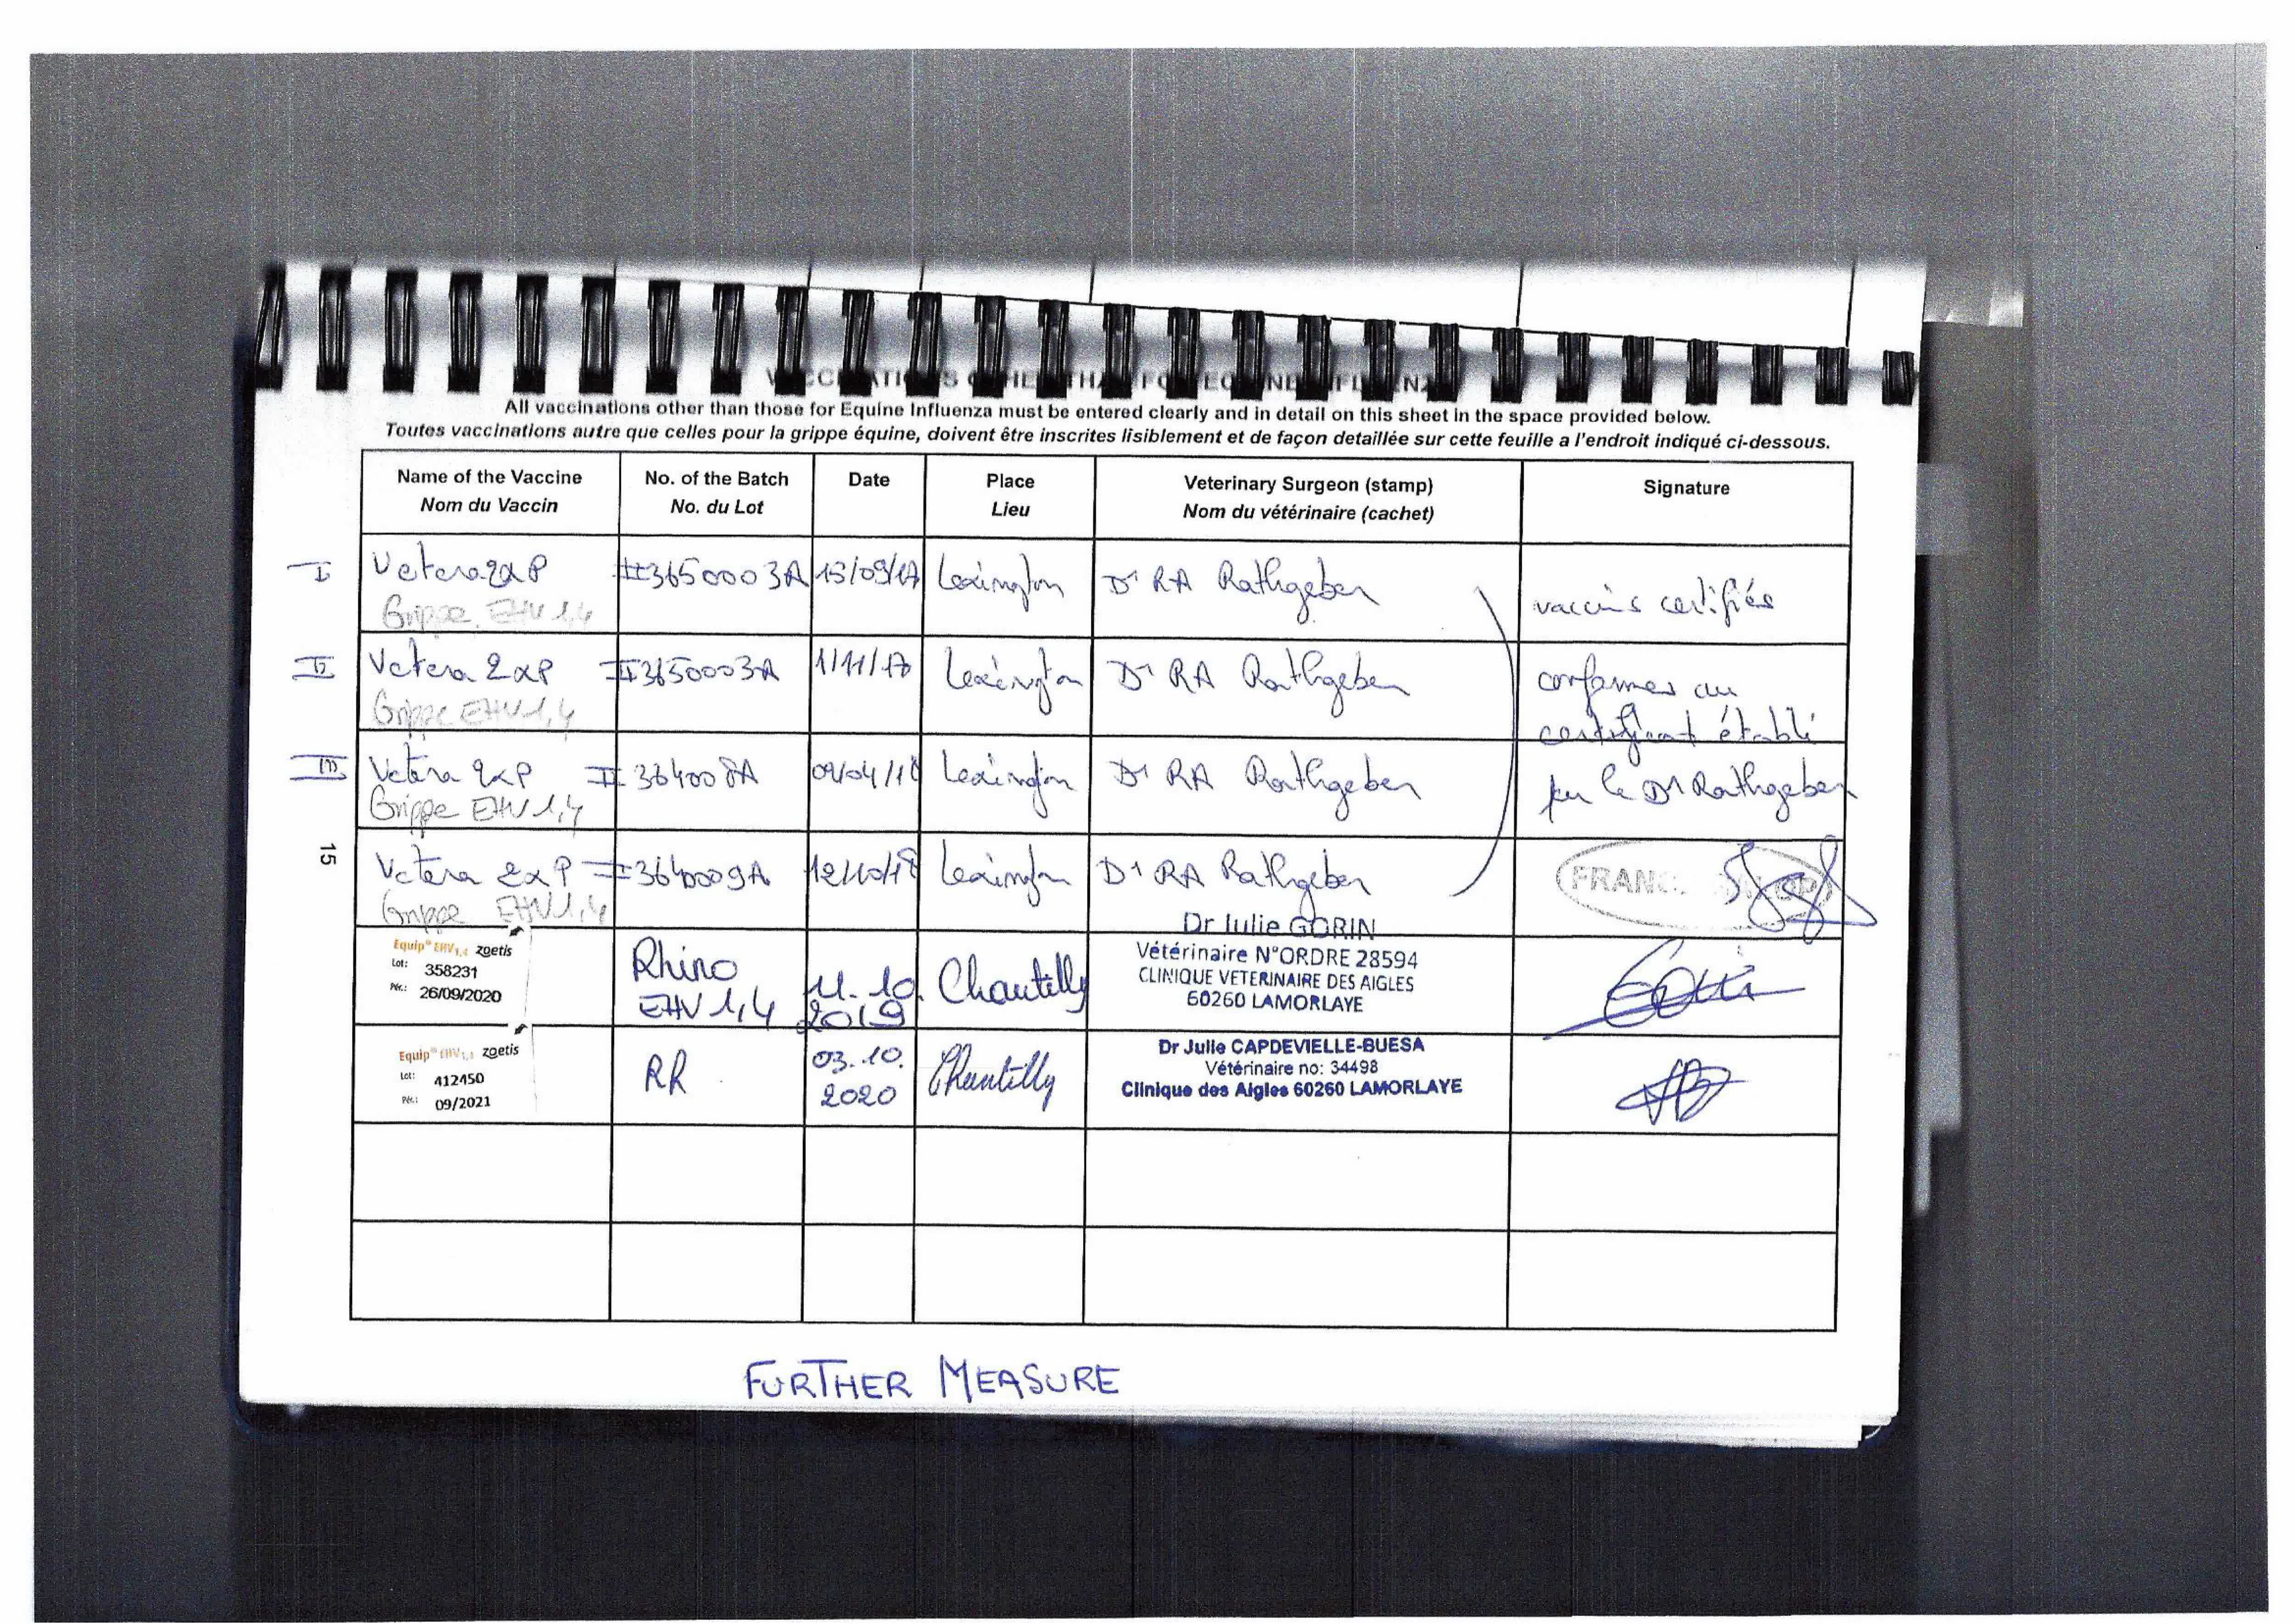 All vaccinations other than those for Equine Influenza must be entered clearly and in detail on this sheet in the space provided below.
Toutes vaccinations autre que celles pour la grippe équine, doivent être inscrites lisiblement et de façon detaillée sur cette feuille a l'endroit indiqué ci-dessous.
Name of the Vaccine No. of the Batch Date Place Veterinary Surgeon (stamp) Signature
Nom du Vaccin No. du Lot Lieu Nom du vétérinaire (cachet)
I Vetera 2xP #3650003A Lexington Dr RA Rathgeber vaccins certifiés
Grippe EHV 1,4
II Vetera 2xP #3650003A 1/11/17 Lexington Dr RA Rathgeber conformes au
Grippe EHV 1,4 certificat établi
III Vetera 2xP Lexington Dr RA Rathgeber par le Dr Rathgeber
Grippe EHV 1,4
15
Vetera 2xP #3640009A 12/10/18 Lexington Dr RA Rathgeber
Grippe EHV 1,4
Dr Julie GORIN
Equip® EHV1,4 zoetis Rhino 11.10. Chantilly Vétérinaire N°ORDRE 28594
Lot: 358231 EHV 1,4 2019 CLINIQUE VETERINAIRE DES AIGLES
Pér.: 26/09/2020 60260 LAMORLAYE
Equip® EHV1,4 zoetis RR 03.10. Chantilly Dr Julie CAPDEVIELLE-BUESA
Lot: 412450 2020 Vétérinaire no: 34498
Pér.: 09/2021 Clinique des Aigles 60260 LAMORLAYE
FURTHER MEASURE